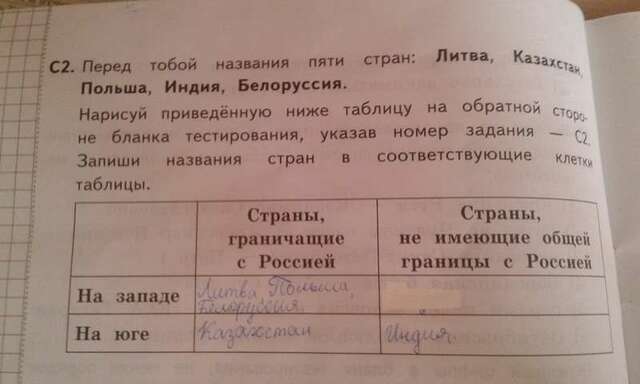 С2. Перед тобой названия пяти стран: Литва, Казахстан,
Польша, Индия, Белоруссия.
Нарисуй приведённую ниже таблицу на обратной сторо-
не бланка тестирования, указав номер задания — С2.
Запиши названия стран в соответствующие клетки
таблицы.
Страны, граничащие с Россией
Страны, не имеющие общей границы с Россией
На западе
Литва Польша,
Белоруссия
На юге
Казахстан
Индия